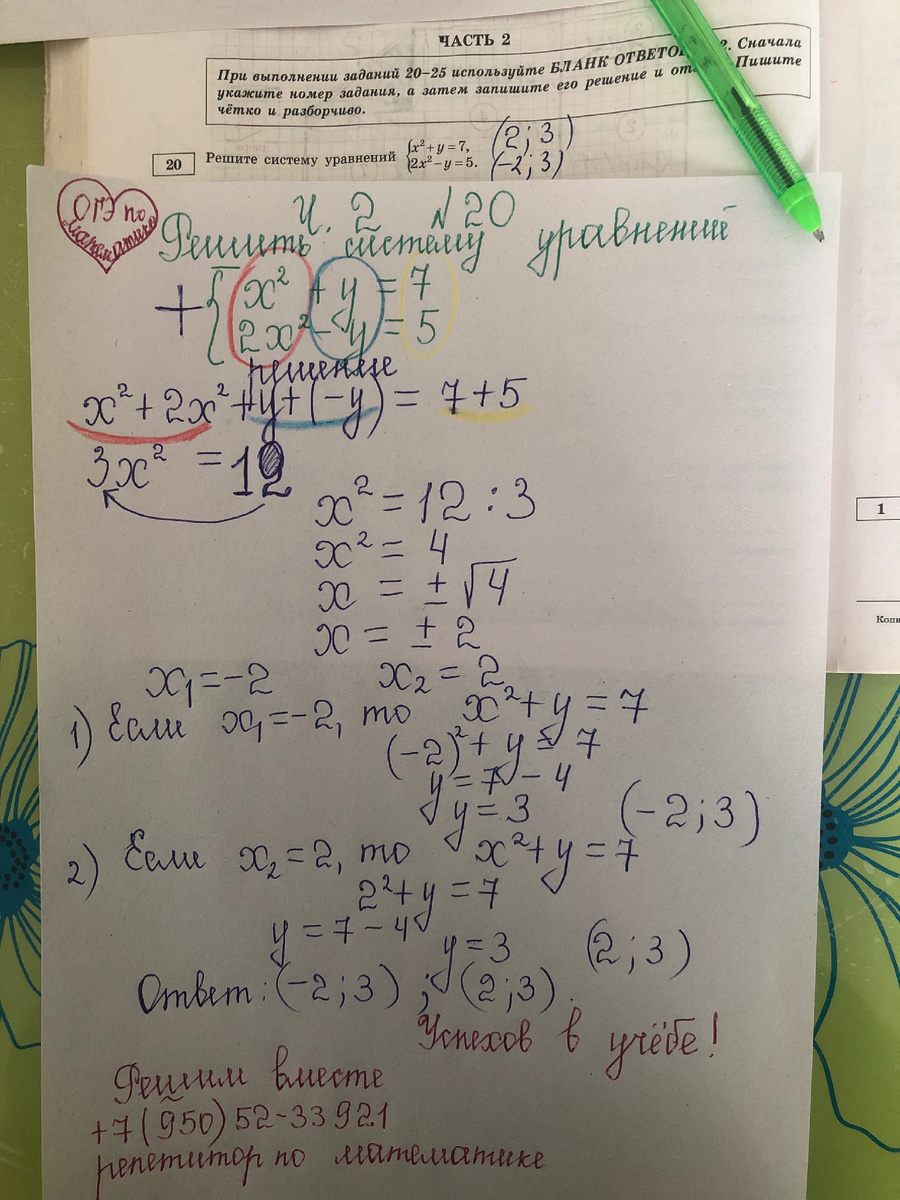 ЧАСТЬ 2
При выполнении заданий 20–25 используйте БЛАНК ОТВЕТОВ 2. Сначала
укажите номер задания, а затем запишите его решение и Пишите
чётко и разборчиво.
20 Решите систему уравнений {x²+y=7, (2; 3)
{2x²−y=5. (−2; 3)
ОГЭ по
математике
Ч. 2 №20
Решить систему уравнений
+ { x² + y = 7
2x² − y = 5
решение
x² + 2x² + y + (−y) = 7 + 5
3x² = 12
x² = 12 : 3
x² = 4
x = ± √4
x = ± 2
x₁ = −2 x₂ = 2
1) Если x₁ = −2, то x² + y = 7
(−2)² + y = 7
y = 7 − 4
y = 3 (−2; 3)
2) Если x₂ = 2, то x² + y = 7
2² + y = 7
y = 7 − 4
y = 3 (2; 3)
Ответ: (−2; 3) ; (2; 3).
Успехов в учёбе!
Решим вместе
+7(950)52-33921
репетитор по математике
1
Копи